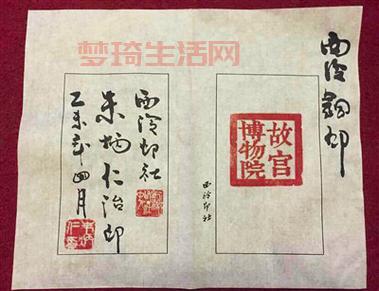 梦琦生活网
西泠铜印
故宫
博物院
西泠印社
西泠印社
朱炳仁治印
乙未年四月